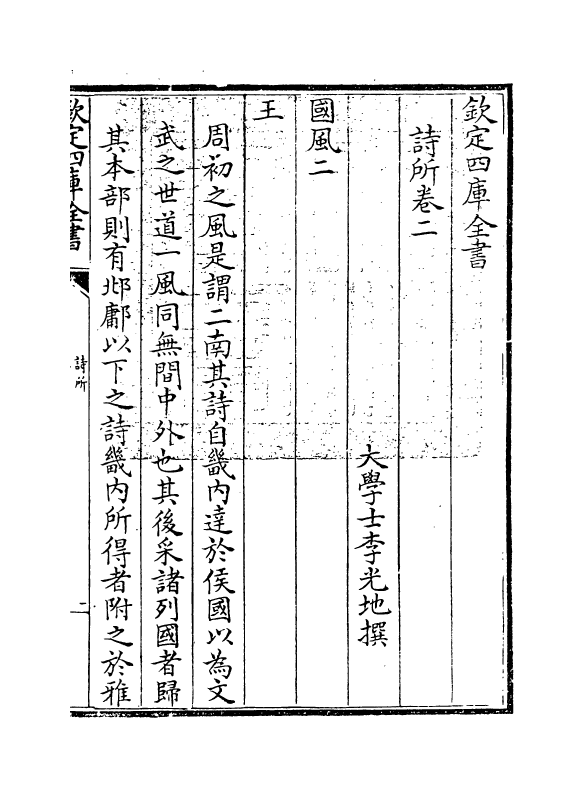 欽定四庫全書
詩所卷二
大學士李光地撰
國風二
王
周初之風是謂二南其詩自畿内達於侯國以為文
武之世道一風同無間中外也其後采諸列國者歸
其本部則有邶鄘以下之詩畿内所得者附之於雅
欽定四庫全書
詩所
二